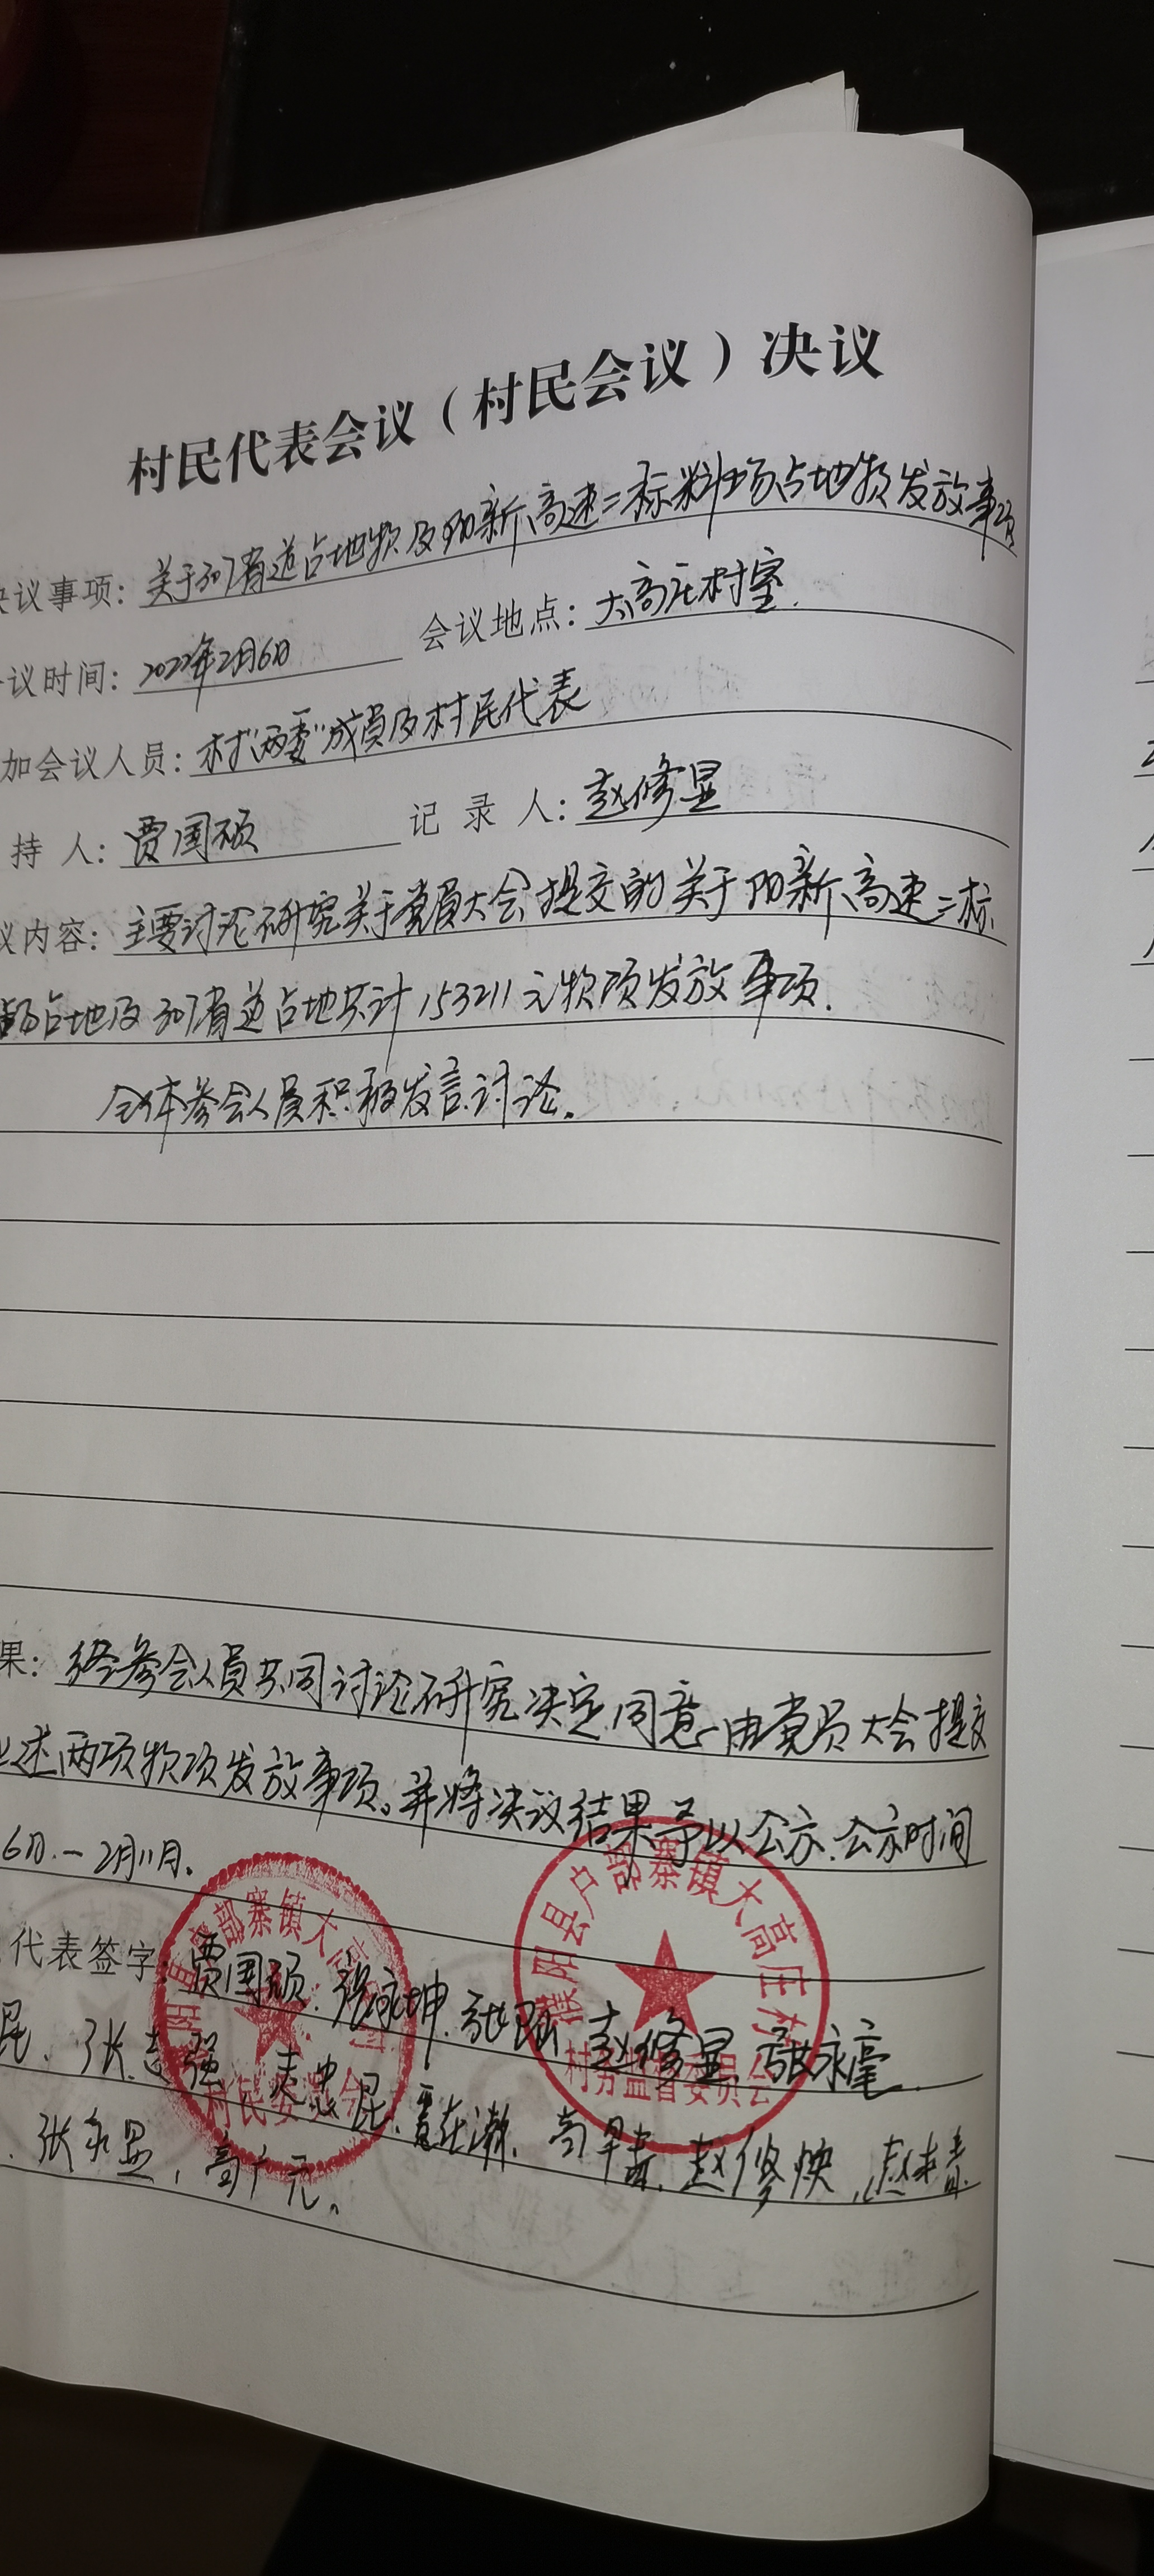 村民代表会议（村民会议）决议
决议事项：关于307省道占地款及阳新高速二标料场占地款发放事项
议时间：2022年2月6日 会议地点：大高庄村室.
加会议人员：村"两委"成员及村民代表
持人：贾国硕 记录人：赵修显
议内容：主要讨论研究关于党员大会提交的关于阳新高速二标
场占地及307省道占地共计153211元款项发放事项.
全体参会人员积极发言讨论。
果：经参会人员共同讨论研究决定同意由党员大会提交
上述两项款项发放事项。并将决议结果予以公示.公示时间
6日.—2月11日.
代表签字：贾国硕.张永坤. 赵修显 张永毫
昆、张志强 昆、贾在瀚、高早 、赵修焕、赵
、张永显，高广元。
阳县户部寨镇大高庄村
村民委员会
濮阳县户部寨镇大高庄村
村务监督委员会